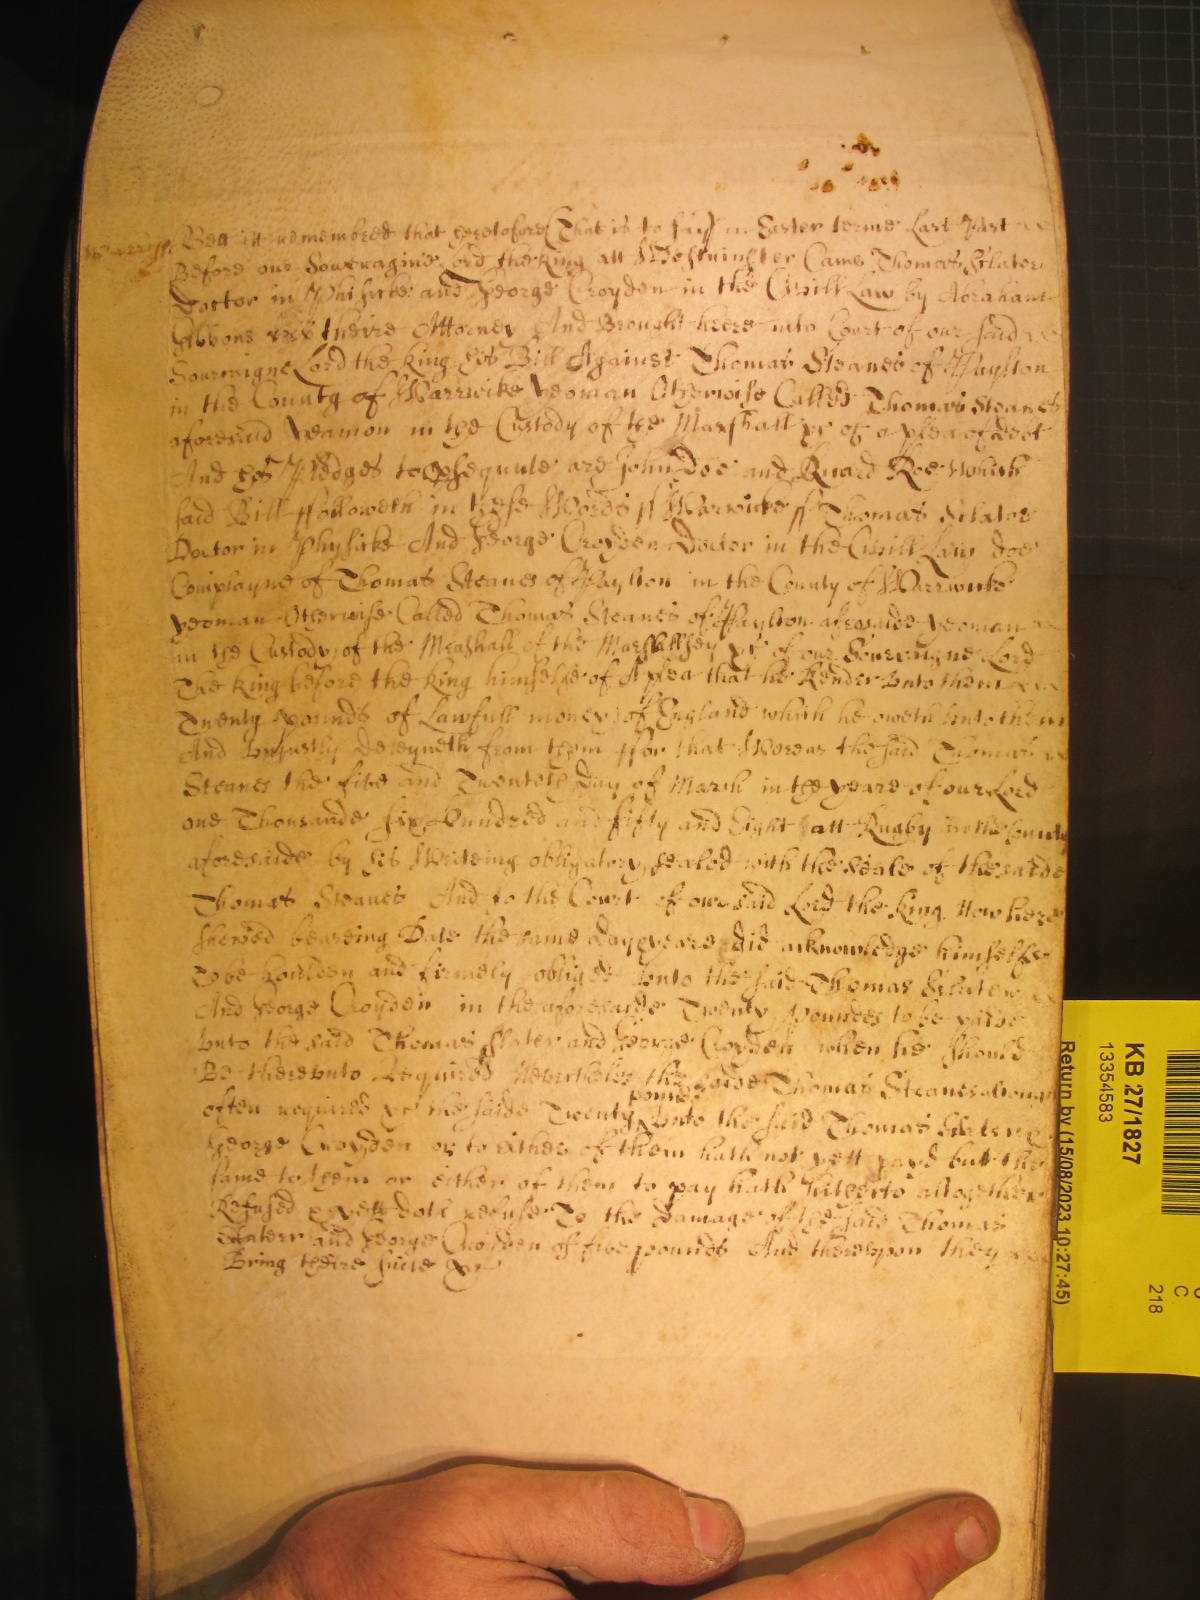 Warr ss
Bee itt remembred that heretofore (That is to say) in Easter terme Last Past
Before our Soveraigne Lord the king att Westminster Came Thomas Slater
Doctor in Phisicke and George Croyden in the Civill Law by Abraham
Gibbons theire Attorney And Brought heere into Court of our said
Soveraigne Lord the king his Bill Against Thomas Steanes of Paylton
in the County of Warrwike yeoman Otherwise Called Thomas Steanes
aforesaid yeamon in the Custody of the Marshall &c of a plea of debt
And his Pledges to are John Doe and Richard Roe Which
said Bill ffolloweth in these Words ss Warwicke ss Thomas Slater
Doctor in Physicke And George Croyden Doctor in the Civill Law doe
Complayne of Thomas Steanes of Paylton in the County of Warrwicke
yeoman Otherwise Called Thomas Steanes of Paylton aforesaide yeoman
in the Custody of the Marshall of the Marshallsey &c of our Soveraigne Lord
The king before the king himselfe of A plea that he Render Unto them
Twenty pounds of Lawfull money of England which he oweth Unto them
And Unjustly deteyneth from them ffor that Wereas the said Thomas
Steanes the five and Twenteth Day of March in the yeare of our Lord
one Thousande six Hundred and fifty and Eight att Rugby in the County
aforesaide by his Writeing obligatory sealed with the seale of the saide
Thomas Steanes And to the Court of our said Lord the king Now here
shewed beareing Date the same day & yeare did acknowledge himselfe
To be houlden and firmely obliged Unto the said Thomas Slater
And George Croyden in the aforesaide Twenty pounds to be paide
Unto the said Thomas Slater and George Croyden when he should
Be thereunto Required Nevertheles the saide Thomas Steanes although
often required &c the saide Twenty pounds Unto the said Thomas Slater &
George Croyden or to either of them hath not yett payd but the
same to them or either of them to pay hath hitherto altogether
Refused & yett doth refuse To the damage of the said Thomas
Slater and George Croyden of five pounds And thereupon they
Bring theire suite &c
KB 27/1827
13354583
Return by (15/08/2023 10:27:45)
C
218